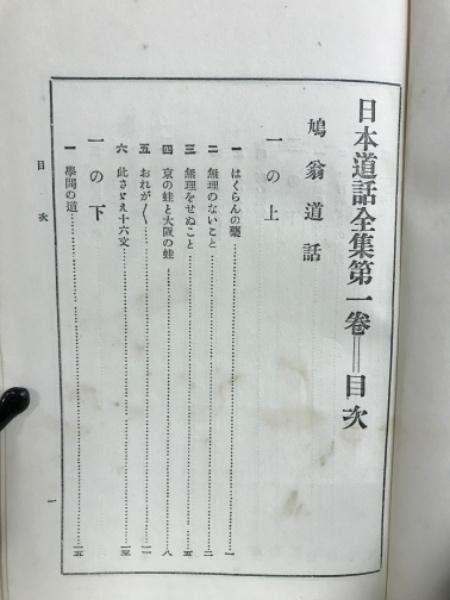 日本道話全集第一卷＝目次
鳩翁道話
一の上
一 はくらんの藥……一
二 無理のないこと……二
三 無理をせぬこと……五
四 京の蛙と大阪の蛙……八
五 おれが〱……一一
六 此さゞえ十六文……一三
一の下
一 學問の道……一五
目次
一